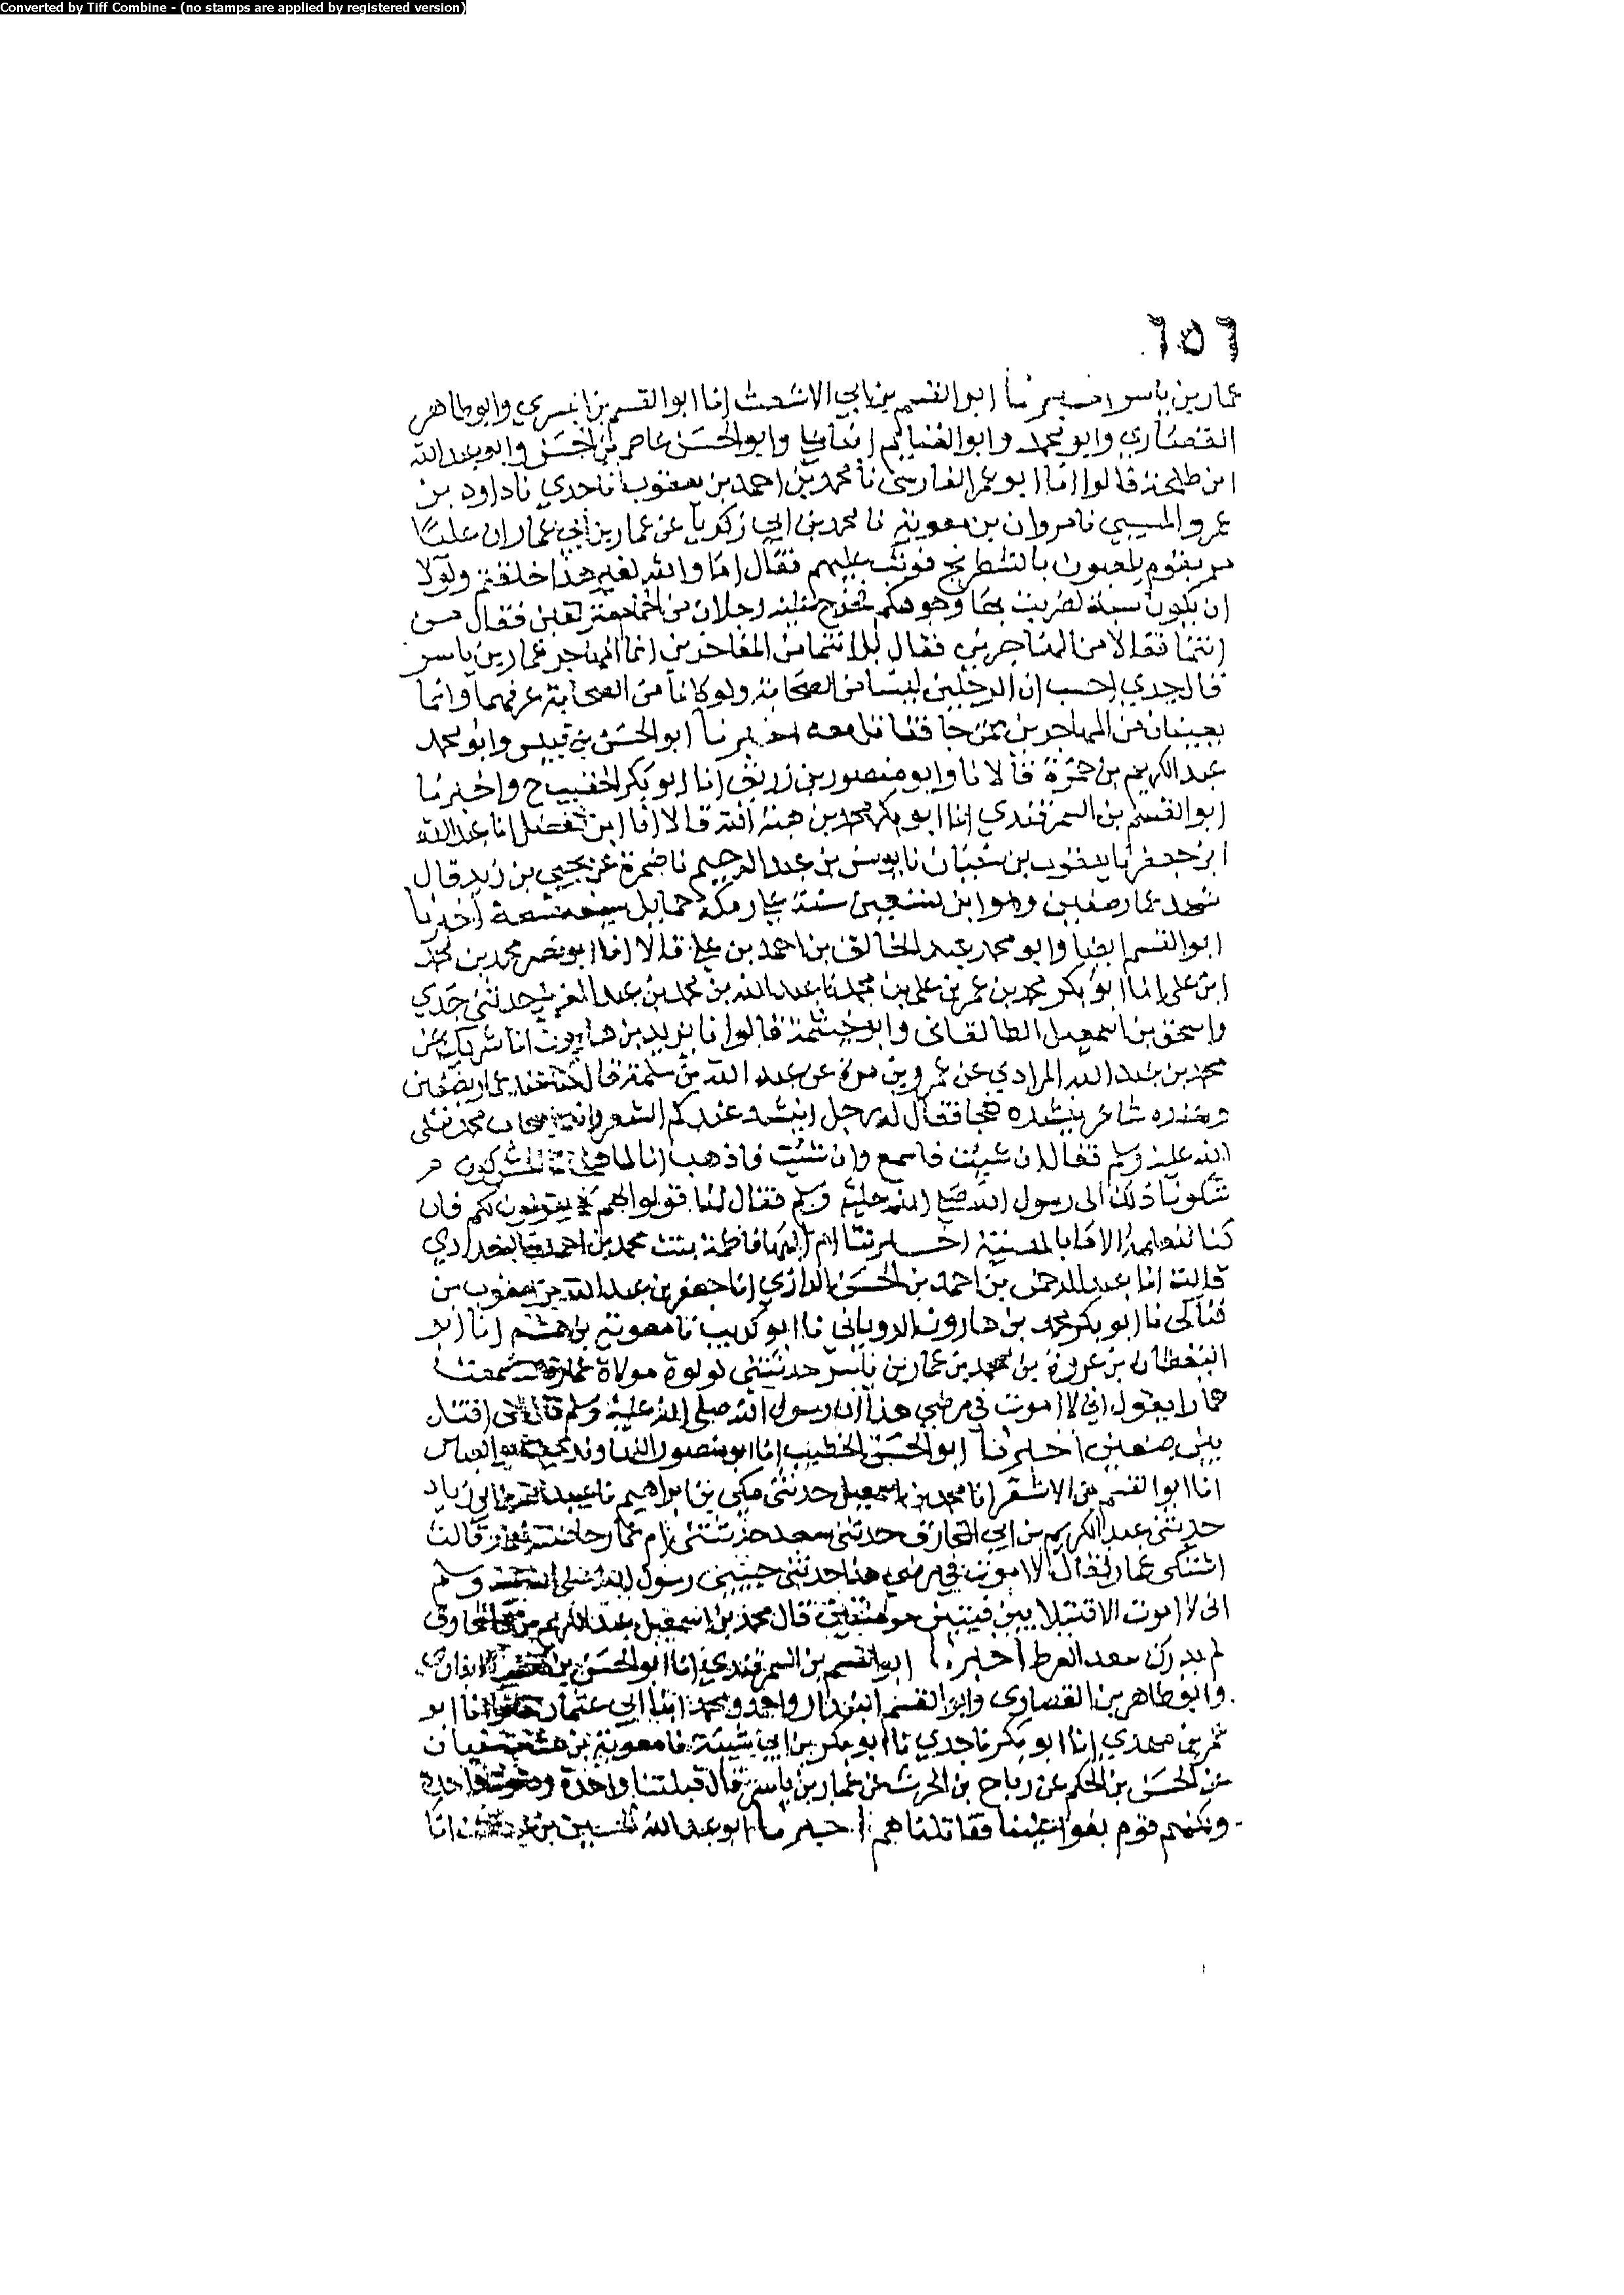 Converted by Tiff Combine - (no stamps are applied by registered version)
٦٥٦
عمار بن ياسر اخبرنا ابو القسم بن ابي الاشعث انا ابو القسم بن البسري وابو طاهر
القصاري وابو محمد وابو الغنايم ابنا وابو الحسن عاصم بن الحسن وابو عبد الله
ابن طلحة قالوا انا ابو عمر الفارسي نا محمد بن احمد بن يعقوب نا جدي نا داود بن
عمرو المسيبي نا مروان بن معوية نا محمد بن ابي زكريا عن عمار بن ابي عمار ان عليا
مر بقوم يلعبون بالشطرنج فوثب عليهم فقال اما والله لغير هذا خلقتم ولولا
ان يكون سنة لضربت بها وجوهكم رجلان من فقال من
انتما فقالا من المهاجرين فقال بل انتما من انما المهاجر عمار بن ياسر
قال جدي احسب ان الرجلين ليسا من الصحابة ولو كانا من الصحابة عرفهما وانما
يعنيان من المهاجرين ممن جا فقاتل معه اخبرنا ابو الحسن بن قبيس وابو محمد
عبد الكريم بن حمزة قالا نا وابو منصور بن زريق انا ابو بكر الخطيب ح واخبرنا
ابو القسم بن السمرقندي انا ابو بكر محمد بن هبة الله قالا انا ابن الفضل انا عبد الله
ابن جعفر نا يعقوب بن سفيان نا يونس بن عبد الرحيم نا ضمرة عن يحيى بن زيد قال
شهد عمار صفين وهو ابن تسعين سنة حمايل سيفه نسعة اخبرنا
ابو القسم ايضا وابو محمد عبد الخالق بن احمد بن علي قالا انا ابو نصر محمد بن محمد
ابن علي انا ابو بكر محمد بن عمر بن علي بن محمد نا عبد الله بن محمد بن عبد العزيز حدثني جدي
واسحق بن اسمعيل الطالقاني وابو خيثمة قالوا نا يزيد بن هارون انا شريك عن
محمد بن عبد الله المرادي عن عمرو بن مرة عن عبد الله بن سلمة قال كنا عند عمار بصفين
وعنده شاعر ينشده هجا فقال له رجل اينشد عندكم الشعر وانتم اصحاب محمد صلى
الله عليه وسلم فقال ان شيت فاسمع وان شيت فاذهب انا لما هجانا المشركون
شكونا ذلك الى رسول الله صلى الله عليه وسلم فقال لنا قولوا لهم كما يقولون لكم فان
كنا لنعلمه الاما بالمدينة اخبرتنا ام البها فاطمة بنت محمد بن احمد البغدادي
قالت انا عبد الرحمن بن احمد بن الحسن الرازي انا جعفر بن عبد الله بن يعقوب بن
فناكي نا ابو بكر محمد بن هارون الروياني نا ابو كريب نا معوية بن هشم انا ابو
اليقظان بن عروة بن محمد بن عمار بن ياسر حدثتني لولوة مولاة عمار قالت سمعت
عمارا يقول اني لا اموت في مرضي هذا ان رسول الله صلى الله عليه وسلم قال اني اقتل
بين صفين اخبرنا ابو الحسن الخطيب انا ابو منصور النهاوندي نا ابو العباس
انا ابو القسم بن الاشقر نا محمد بن اسمعيل حدثني مكي بن ابراهيم نا عبيد الله بن ابي زياد
حدثني عبد الكريم بن ابي المخارق حدثني سعد حدثتني ام عمار حاضنة عمار قالت
اشتكى عمار فقال لا اموت في مرضي هذا حدثني حبيبي رسول الله صلى الله عليه وسلم
اني لا اموت الا قتيلا بين فيتين مومنتين قال محمد بن اسمعيل عبد الكريم بن ابي المخارق
لم يدرك سعد القرظ اخبرنا ابو القسم بن السمرقندي انا ابو الحسن بن
وابو طاهر بن القصاري وابو القسم واحمد ومحمد ابنا ابي عثمان قالوا انا ابو
عمر بن مهدي انا ابو بكر نا جدي نا ابو بكر بن ابي شيبة نا معوية بن هشم نا سفيان
عن الحسن بن الحكم عن رياح بن الحرث عن عمار بن ياسر قال قبلتنا واحدة ودعوتنا واحدة
ولكنهم قوم بغوا علينا فقاتلناهم اخبرنا ابو عبد الله الحسين بن انا